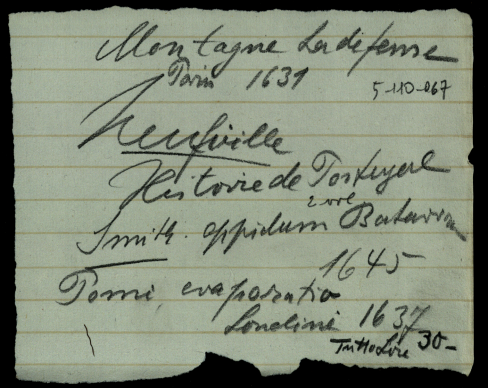 Montagne La défense
Paris 1631
5-110-067
Neufville
Histoire de Portugal
2 vol
Smith. oppidum Batavorum
1645
Pomi, evaporatio
Londini 1637
Tutto Lire 30-